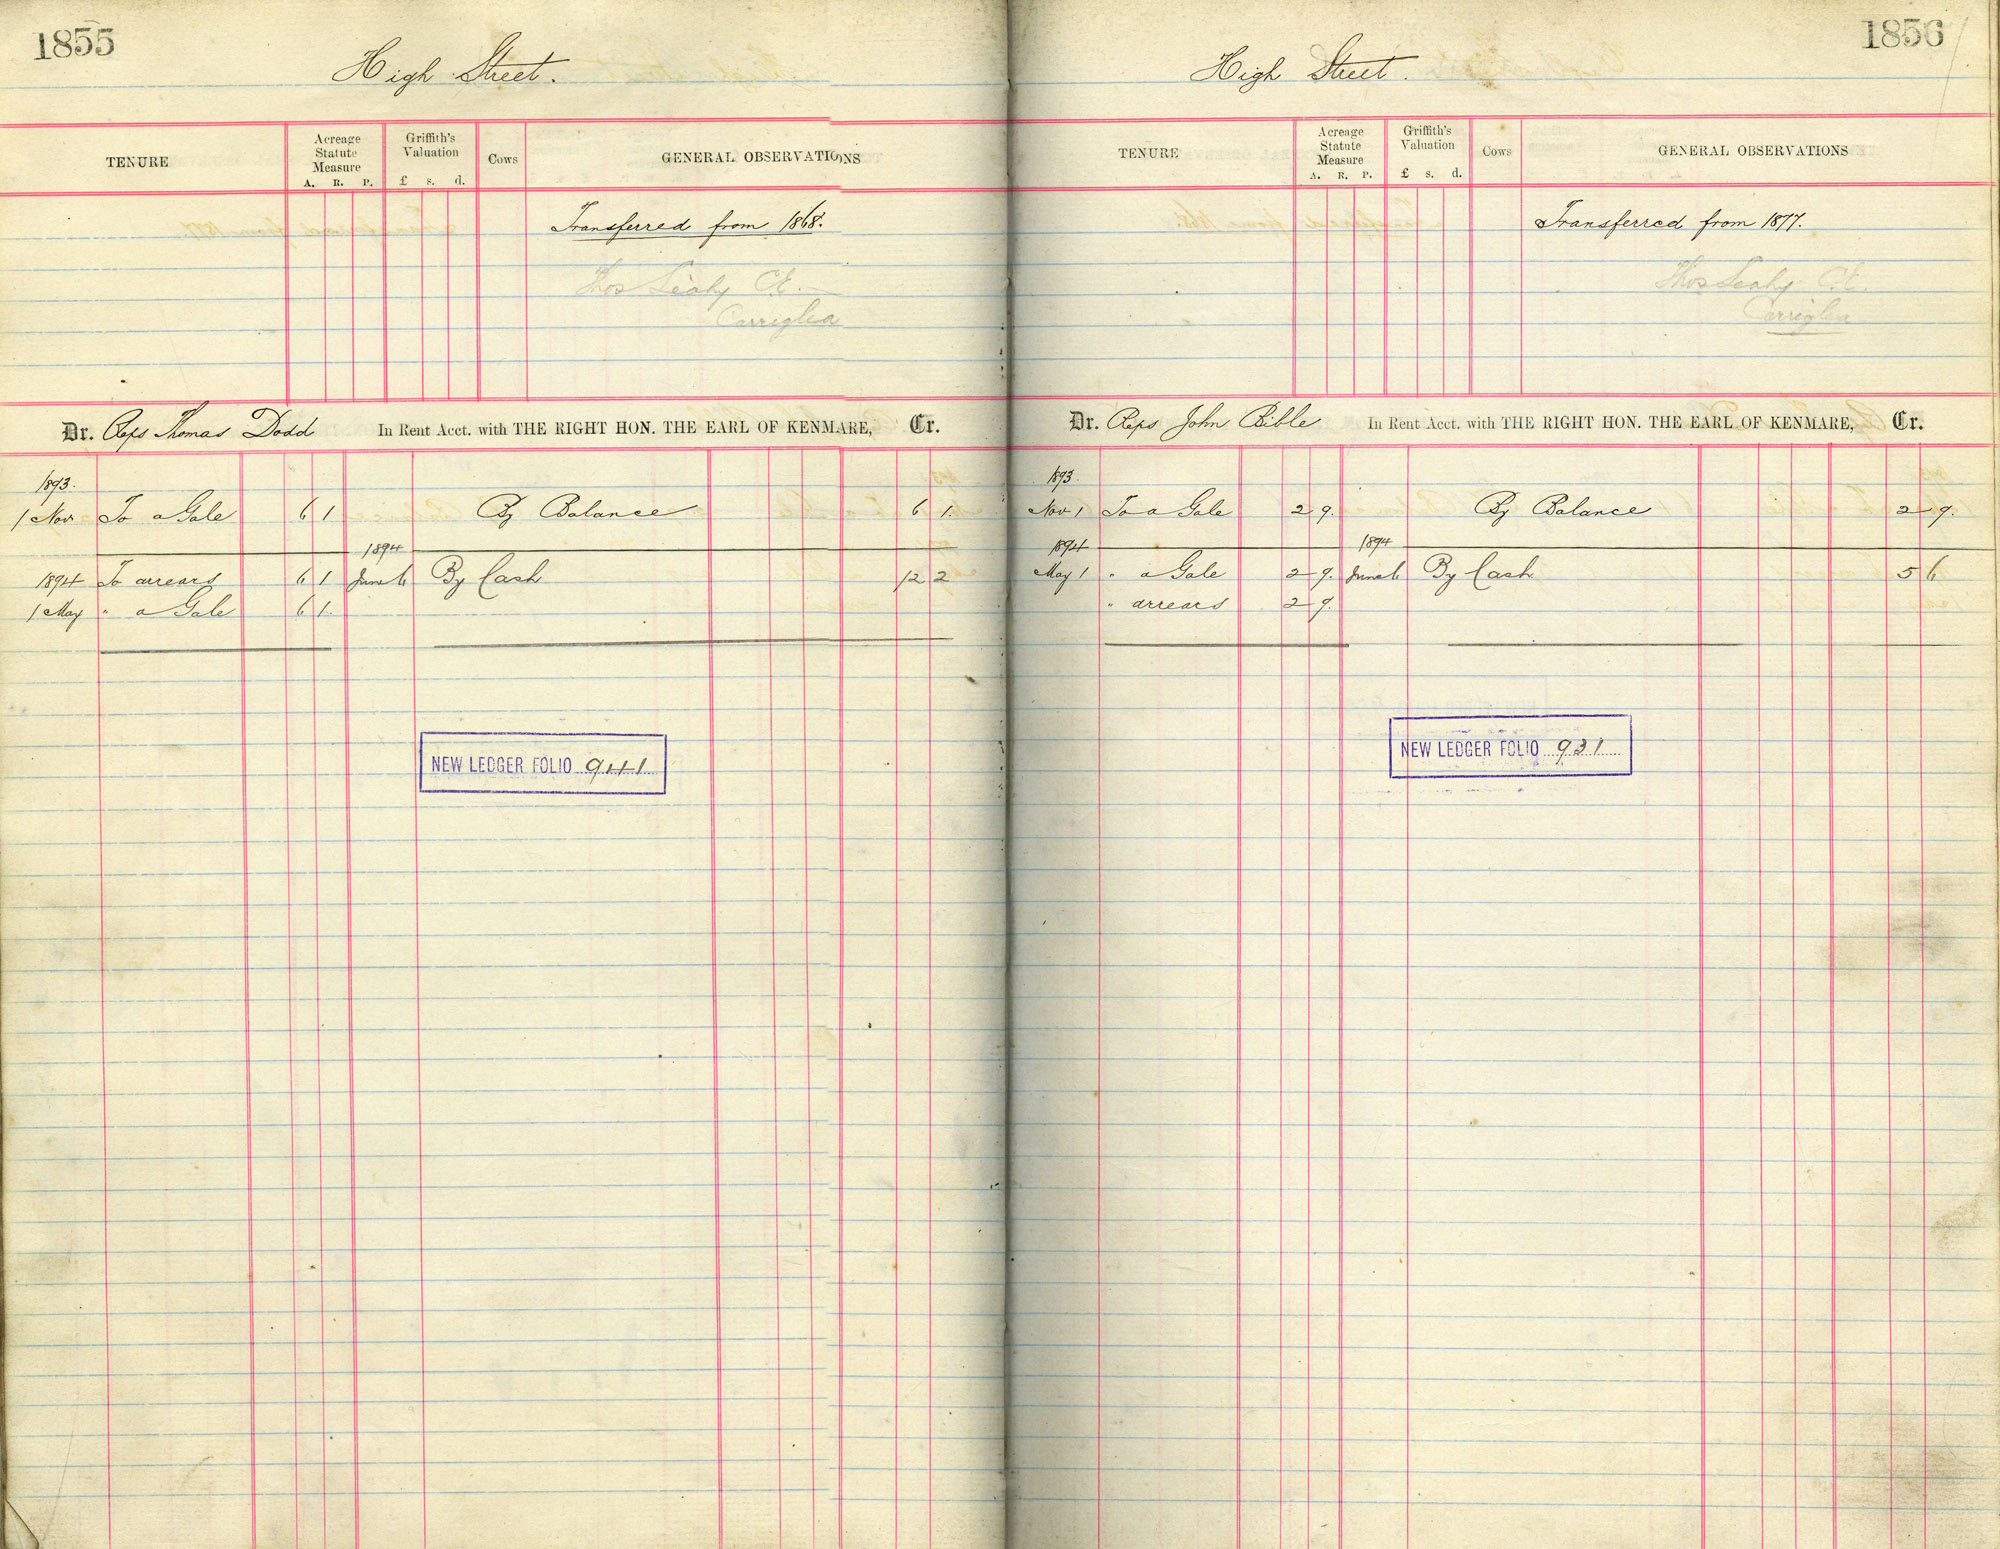 1855
High Street.
TENURE
Acreage Statute Measure
A. R. P.
Griffith's Valuation
£ s. d.
Cows
GENERAL OBSERVATIONS
Transferred from 1868.
Thos Leahy C.E.
Carriglea
Dr. Reps Thomas Dodd In Rent Acct. with THE RIGHT HON. THE EARL OF KENMARE, Cr.
1893.
1 Nov To a Gale 6 1 By Balance 6 1.
1894
1894 To arrears 6 1 June 6 By Cash 12 2
1 May " a Gale 6 1.
NEW LEDGER FOLIO 941
1856
High Street.
TENURE
Acreage Statute Measure
A. R. P.
Griffith's Valuation
£ s. d.
Cows
GENERAL OBSERVATIONS
Transferred from 1877.
Thos Leahy C.E.
Carriglea
Dr. Reps John Bible In Rent Acct. with THE RIGHT HON. THE EARL OF KENMARE, Cr.
1893
Nov 1 To a Gale 2 9. By Balance 2 9.
1894 1894
May 1 " a Gale 2 9. June 6 By Cash 5 6
" arrears 2 9.
NEW LEDGER FOLIO 931